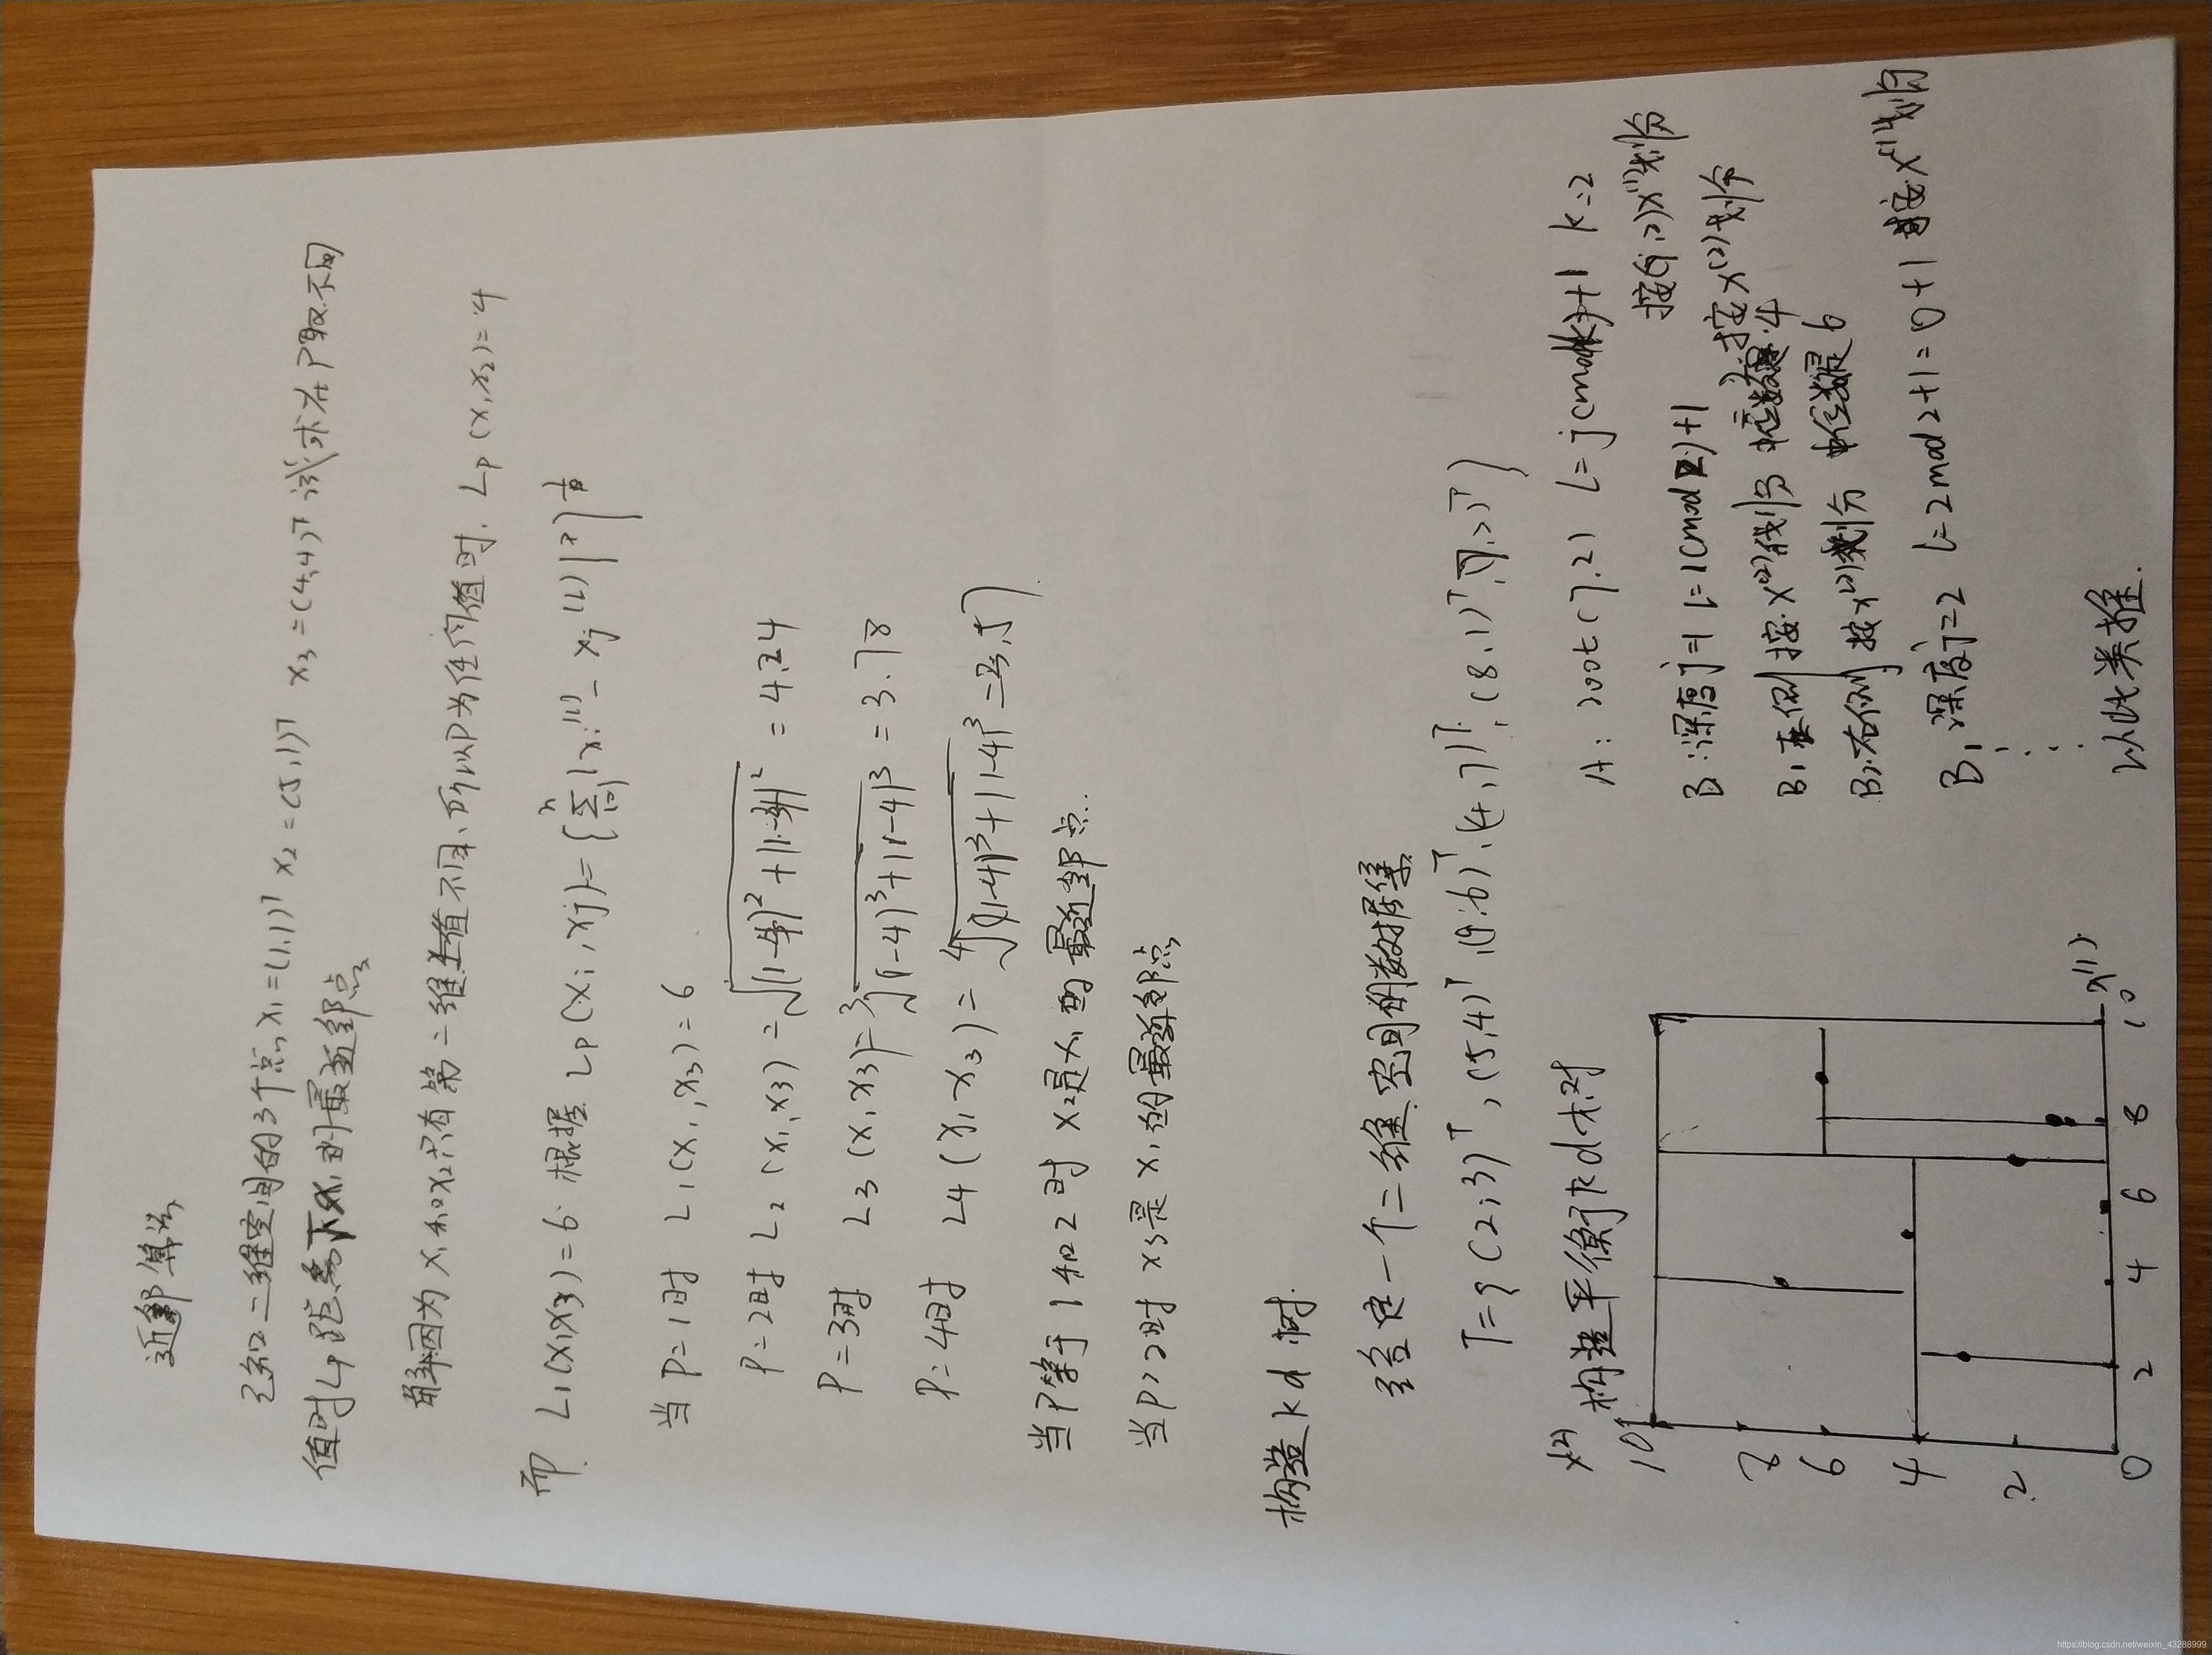 近邻算法
已知二维空间的3个点 x1=(1,1)T x2=(5,1)T x3=(4,4)T 试求在P取不同
值时Lp距离下x1的最近邻点
解:因为x1和x2只有第一维上值不同,所以P为任何值时. Lp(x1,x2)=4
而 L1(x1x3)=6. 根据 Lp(xi,xj)={∑|xi(l)-xj(l)|p}1/p
当P=1时 L1(x1,x3)=6
P=2时 L2(x1,x3)=√|1-4|²+|1-4|² = 4.24
P=3时 L3(x1,x3)=³√|1-4|³+|1-4|³=3.78
P=4时 L4(x1,x3)= ⁴√|1-4|³+|1-4|³
当P等于1和2时 x2是x1的最近邻点.
当P>2时 x3是x1的最近邻点
构造kd树.
给定一个二维空间的数据集
T={(2,3)T,(5,4)T,(9,6)T,(4,7)T,(8,1)T,(7,2)T}
构造平衡kd树
x(2)
10
8
6
4
2
0
2
4
6
8
10
x(1)
A: root(7,2) l=j(modk)+1 k=2
按(7,2)x(1)划分
B:深度j=1 l=1(mod2)+1 按x(2)划分
B1左侧 按x(2)划分 中位数是4
B2右侧 按x(2)划分 中位数是6
B1深度j=2 l=2mod2+1=0+1 按x(1)划分
以此类推.
https://blog.csdn.net/weixin_43288999